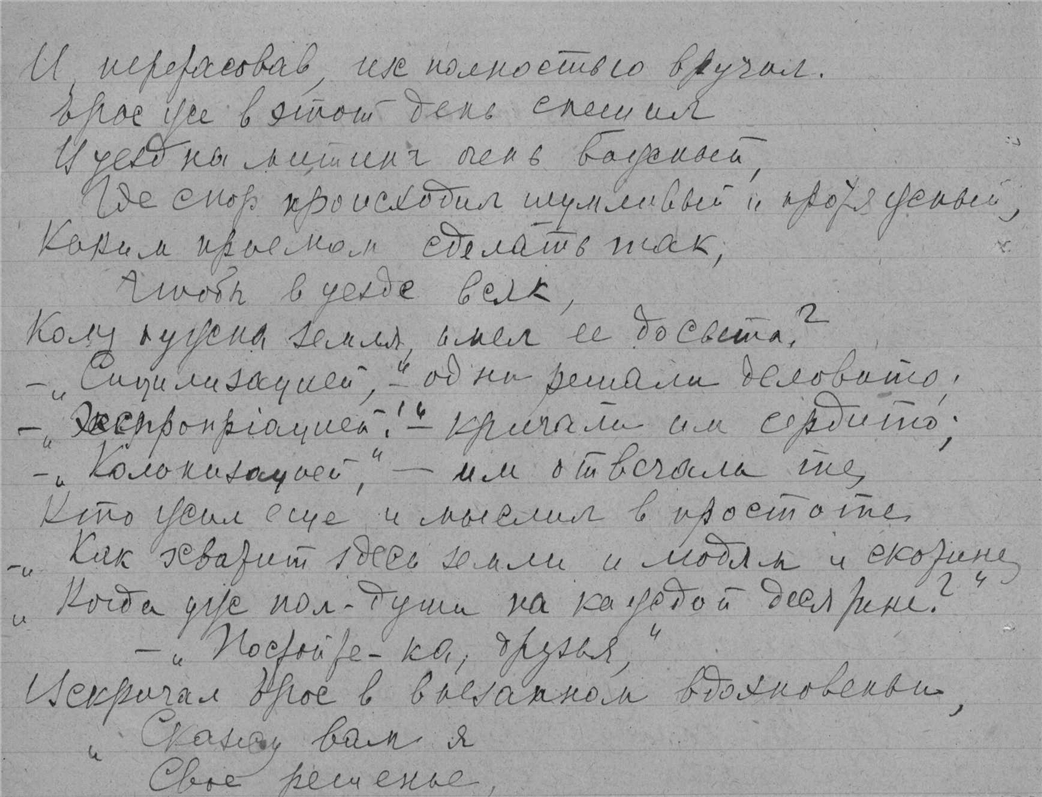 И, перефасовав, их полностью вручил.
Эрос же в этот день спешил
В уезд на митинг очень важный,
Где спор происходил шумливый и протяжный,
Каким приемом сделать так,
Чтобы в уезде всяк,
Кому нужна земля, имел ее досыта?
— „Социлизацией," — одни решали деловито;
— „Экспропріацией!" — кричали им сердито;
— „Колонизацией," — им отвечали те,
Кто жил еще и мыслил в простоте
— „Как хватит здесь земли и людям и скотине,
„Когда уж пол-души на каждой десятине?"
— „Постойте-ка, друзья,"
Вскричал Эрос в внезапном вдохновеньи,
„Скажу вам я
Свое решенье,